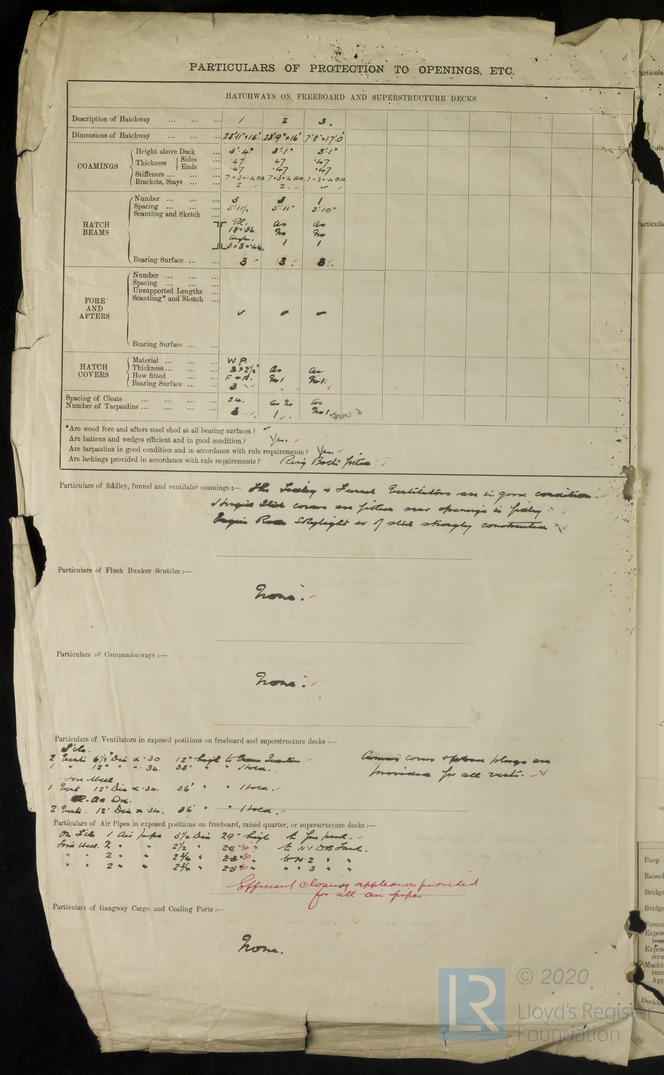 PARTICULARS OF PROTECTION TO OPENINGS, ETC.
HATCHWAYS ON FREEBOARD AND SUPERSTRUCTURE DECKS
Description of Hatchway ... ... ... 1 2 3.
Dimensions of Hatchway ... ... 23'11"×16' 23'9"×16' 7'8"×17'0"
COAMINGS
Height above Deck ... 3'.4" 3'.1" 3'.1"
Thickness Sides ... .47 .47 .47
Ends ... .47 .47 .47
Stiffeners ... ... ... 7×3×.4 BA 7×3×.4 BA 7×3×.4 BA
Brackets, Stays ... ... 2 2
HATCH BEAMS
Number ... ... ... 3 3 1
Spacing ... ... ... 5'11" 3'10"
Scantling and Sketch ... Pl. as as
No No
1 1
Bearing Surface ... ... 3 3 3
FORE AND AFTERS
Number ... ... ...
Spacing ... ... ...
Unsupported Lengths ...
Scantling* and Sketch ...
Bearing Surface ... ...
HATCH COVERS
Material ... ... ... W.P.
Thickness ... ... ... 3×2½" as as
How fitted ... ... F & A. No 1 No 1.
Bearing Surface ... ... 3
Spacing of Cleats ... ... ... 24. as No as
Number of Tarpaulins ... ... ... 3 1 No 1
*Are wood fore and afters steel shod at all bearing surfaces?
Are battens and wedges efficient and in good condition? Yes.
Are tarpaulins in good condition and in accordance with rule requirements? Yes.
Are lashings provided in accordance with rule requirements? Ring Bolts fitted
Particulars of fiddley, funnel and ventilator coamings:— The Fiddley & Funnel Ventilators are in good condition.
Hinged Steel covers are fitted over openings in fidley.
Engine Room Skylight is of steel strongly constructed
Particulars of Flush Bunker Scuttles:—
None.
Particulars of Companionways:—
None.
Particulars of Ventilators in exposed positions on freeboard and superstructure decks:—
F'cle.
2 Vents 6½" Dia × .30 12" high to Crew Quarters
1 " 12" " × .34. 38" " " Hold.
Canvas covers & wooden plugs are
provided for all vents.
Fore Well.
1 Vent. 12" Dia × .34. 36" " " Hold.
2 Vents. 12" Dia × .34. 36" " " Hold.
Particulars of Air Pipes in exposed positions on freeboard, raised quarter, or superstructure decks:—
On F'cle 1 Air pipe Dia 29" high to fore peak.
Fore Well. 2 " " 2½ " 30 " to No 1 DB Tank.
" " 2 " " 2¼ " 30 " to No 2 " "
" " 2 " " 2¼ " 30 " " " 3 " "
Efficient closing appliances provided
for all air pipes.
Particulars of Gangway Cargo and Coaling Ports:—
None.
Poop
Raised
Bridge
Bridge
© 2020
LR
Lloyd's Register
Foundation